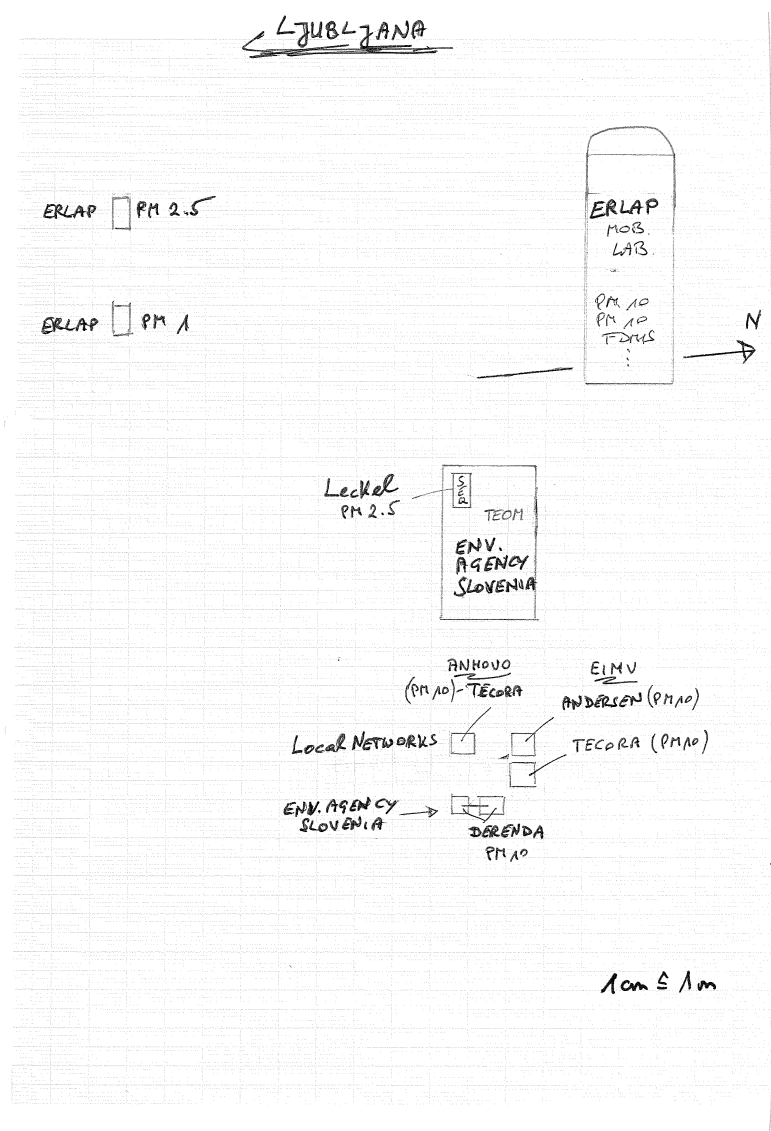 LJUBLJANA
ERLAP PM 2.5
ERLAP PM 1
ERLAP
MOB.
LAB.
PM 10
PM 10
FDMS
N
Leckel
PM 2.5
SEQ
TEOM
ENV.
AGENCY
SLOVENIA
ANHOVO
(PM10)-TECORA
EIMV
ANDERSEN (PM10)
Local NETWORKS
TECORA (PM10)
ENV. AGENCY
SLOVENIA
DERENDA
PM10
1cm ≙ 1m